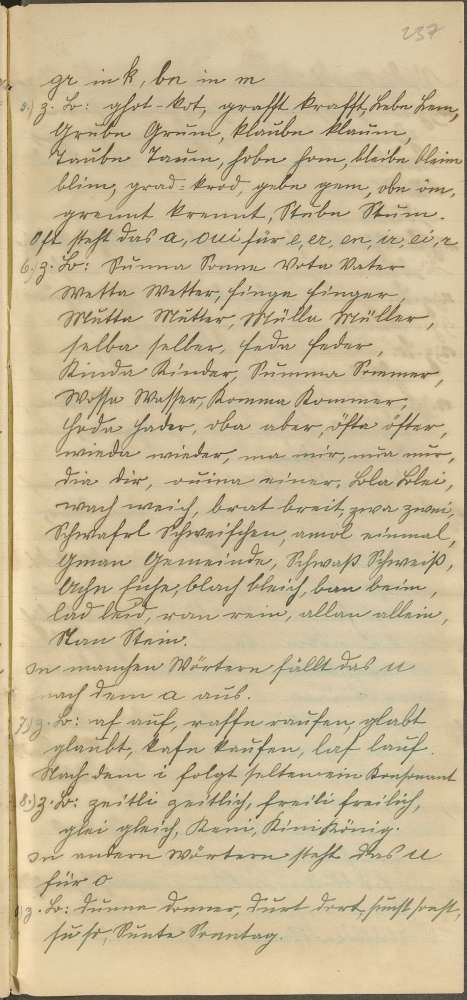 237
gr in k, bn in m
5.) z. B: ghot-kot, grafft krafft, Lebe Lem,
Grube Grum, klaube klaum,
Taube Taum, hobe hom, bleibe bleim
blim, grad-krod, gebe gem, obe om,
grennt krennt, Stube Stum.
Oft steht das a, oui für e, er, en, ir, ei, r
6.) z. B: Sunna Sonne Vota Vater
Wetta Wetter, finga finger,
Mutta Mutter, Mülla Müller,
selba selber, feda feder,
Kinda Kinder, Summa Sommer,
Wossa Wasser, Komma Kammer,
hoda hader, oba aber, öfta öfter,
wieda wieder, ma mir, nua nur,
dia dir, ouina einer, Bla Blei,
wach weich, brat breit, zwa zwei,
Schwafrl Schweifchen, amol einmal,
Gman Gemeinde, Schwaß Schweiß,
blach bleich, ban beim,
lad leid, ran rein, allan allein,
Stan Stein.
In manchen Wörtern fällt das u
nach dem a aus.
7.) z. B: af auf, raffn raufen, glabt
glaubt, kafn kaufen, laf lauf.
Nach dem i folgt selten ein Konsonant
8.) z. B: zeitli zeitlich, freili freilich,
glei gleich, Keni, Kini König.
In andern Wörtern steht das u
für o
z. B: dunna donner, durt dort, sunst sonst,
su so, Sunte Sonntag.